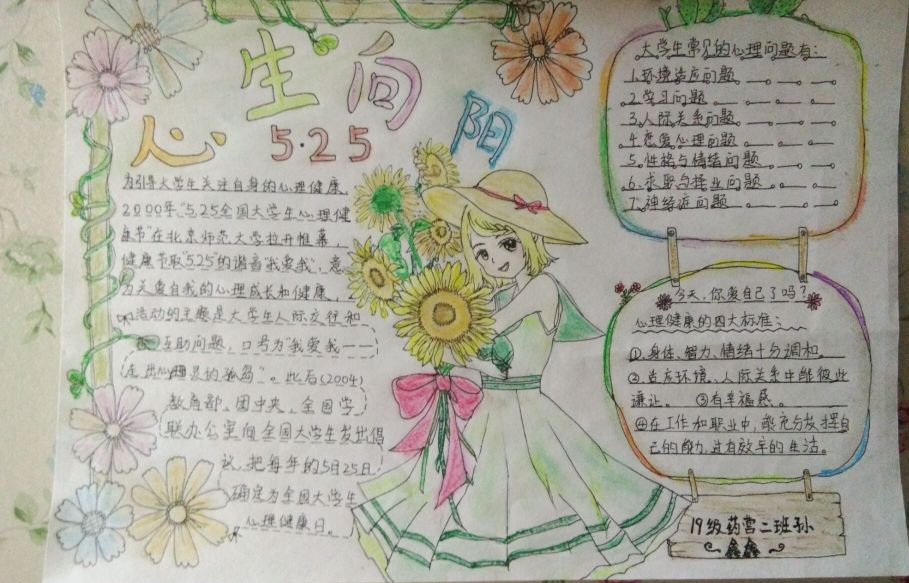 心生向阳
5·25
为引导大学生关注自身的心理健康,
2000年"5.25全国大学生心理健
康节"在北京师范大学拉开帷幕,
健康节取"5.25"的谐音"我爱我",意
为关爱自我的心理成长和健康.
活动的主题是大学生人际交往和
互助问题,口号为"我爱我——
走出心理的孤岛"。此后(2004)
教育部、团中央、全国学
联办公室向全国大学生发出倡
议,把每年的5月25日
确定为全国大学生
心理健康日。
大学生常见的心理问题有:
1.环境适应问题
2.学习问题
3.人际关系问题
4.恋爱心理问题
5.性格与情绪问题
6.求职与择业问题
7.神经症问题
今天,你爱自己了吗?
心理健康的四大标准:
①.身体、智力、情绪十分调和。
②.适应环境、人际关系中能彼此
谦让。 ③有幸福感。
④在工作和职业中,能充分发挥自
己的能力,过有效率的生活。
19级药营二班孙
鑫鑫